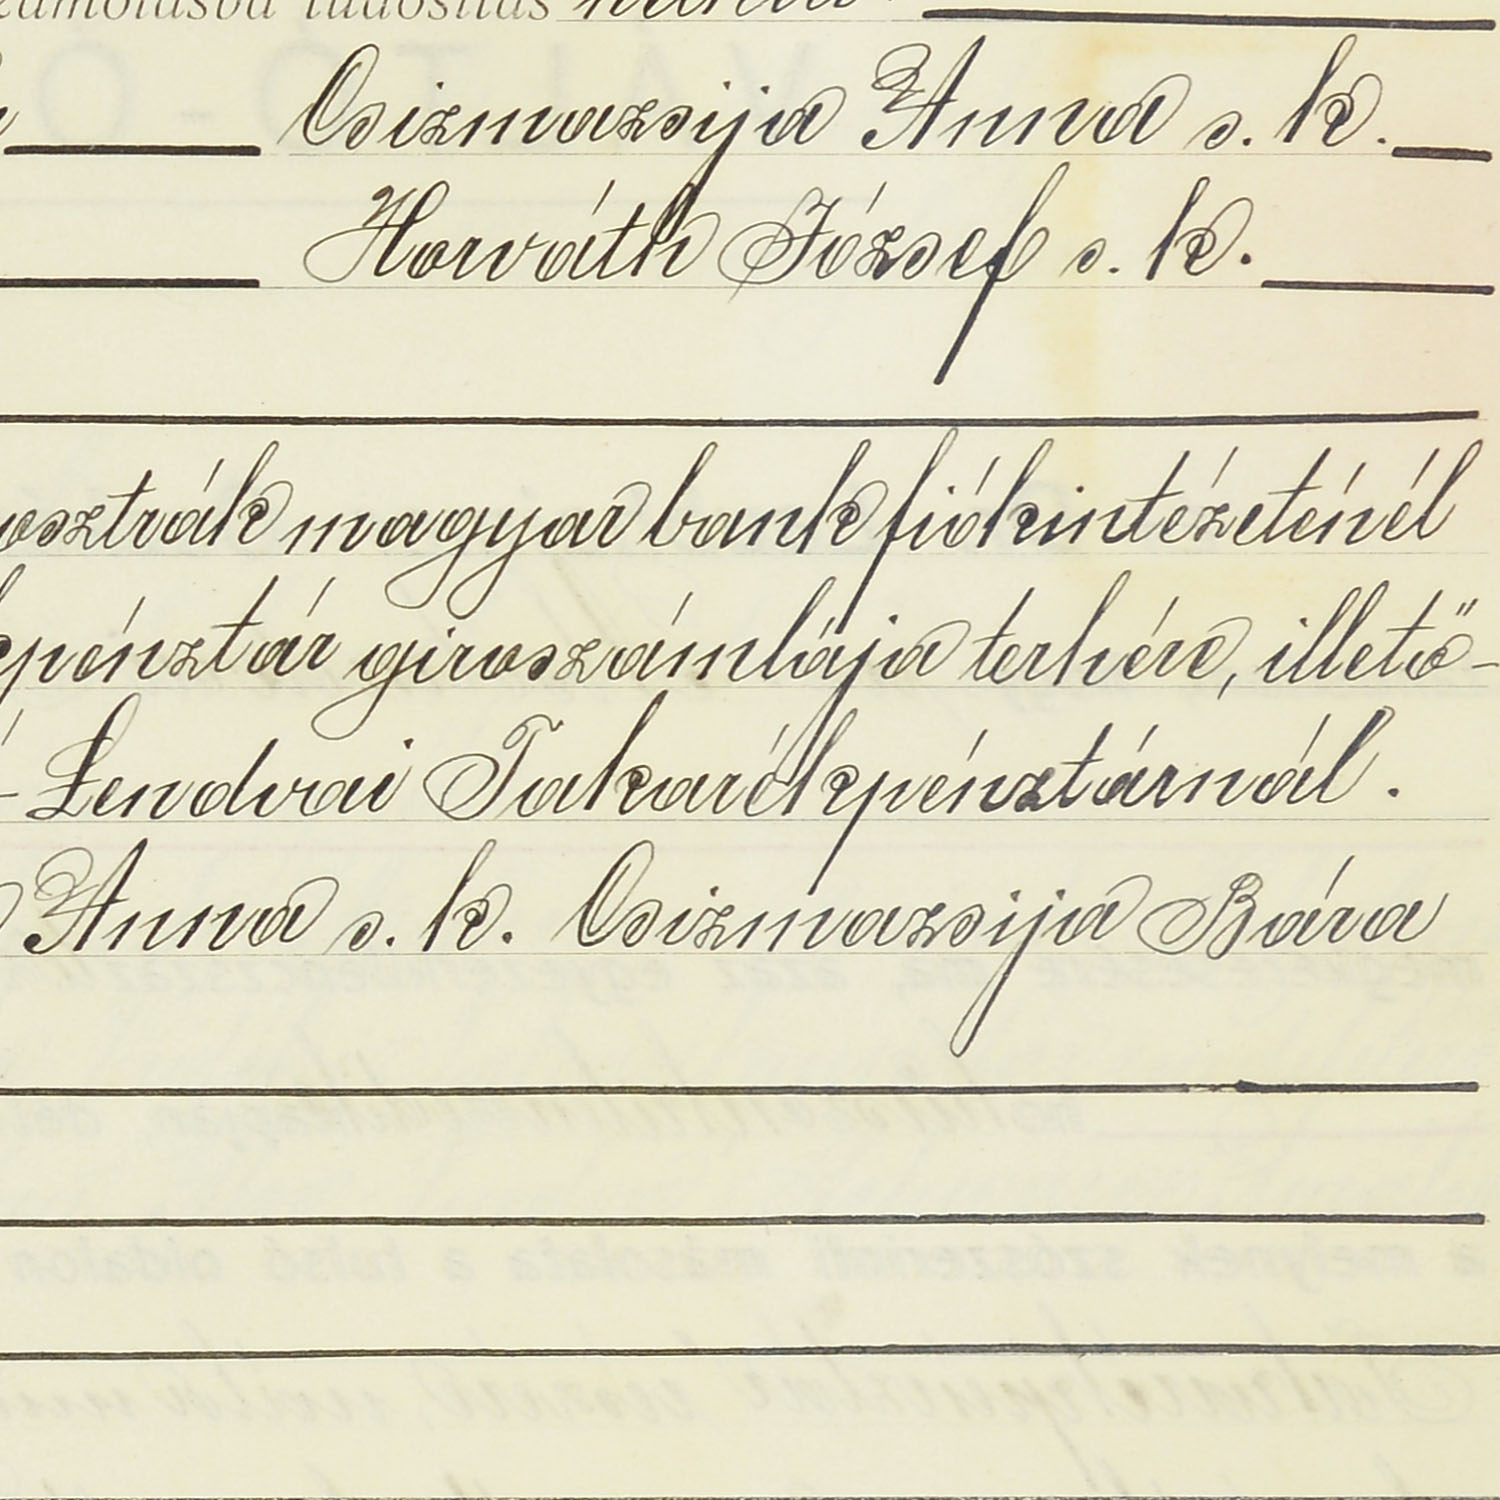 tudósítás
Csizmazsija Anna s. k.
Horváth József s. k.
osztrák magyar bank fiókintézeténél
pénztár giroszámlája terhére, illető-
- Lendvai Takarékpénztárnál.
Anna s. k. Csizmazsija Bára